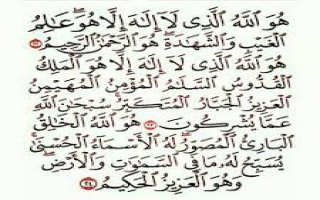 هُوَ ٱللَّهُ ٱلَّذِى لَآ إِلَـٰهَ إِلَّا هُوَ ۖ عَـٰلِمُ
ٱلْغَيْبِ وَٱلشَّهَـٰدَةِ ۖ هُوَ ٱلرَّحْمَـٰنُ ٱلرَّحِيمُ ٢٢
هُوَ ٱللَّهُ ٱلَّذِى لَآ إِلَـٰهَ إِلَّا هُوَ ٱلْمَلِكُ
ٱلْقُدُّوسُ ٱلسَّلَـٰمُ ٱلْمُؤْمِنُ ٱلْمُهَيْمِنُ
ٱلْعَزِيزُ ٱلْجَبَّارُ ٱلْمُتَكَبِّرُ ۚ سُبْحَـٰنَ ٱللَّهِ
عَمَّا يُشْرِكُونَ ٢٣ هُوَ ٱللَّهُ ٱلْخَـٰلِقُ
ٱلْبَارِئُ ٱلْمُصَوِّرُ ۖ لَهُ ٱلْأَسْمَآءُ ٱلْحُسْنَىٰ ۚ
يُسَبِّحُ لَهُۥ مَا فِى ٱلسَّمَـٰوَٰتِ وَٱلْأَرْضِ ۖ
وَهُوَ ٱلْعَزِيزُ ٱلْحَكِيمُ ٢٤